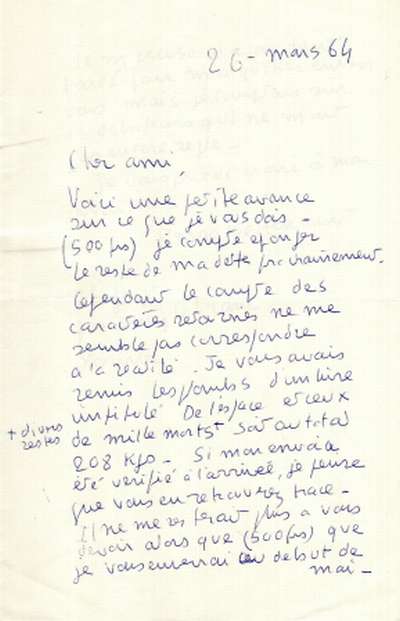 26 - mars 64
Cher ami,
Voici une petite avance
sur ce que je vous dois -
(500 frs) je compte eponger
le reste de ma dette prochainement.
Cependant le compte des
caractères retournés ne me
semble pas correspondre
à la réalité. Je vous avais
remis les plombs d'un livre
intitulé De l'espace et ceux
de mille morts soit au total
+ divers
restes
208 kgs - Si mon envoi a
été vérifié à l'arrivée, je pense
que vous en retrouverez trace -
Il ne me resterait plus à vous
devoir alors que (500 frs) que
je vous enverrai au debut de
mai -